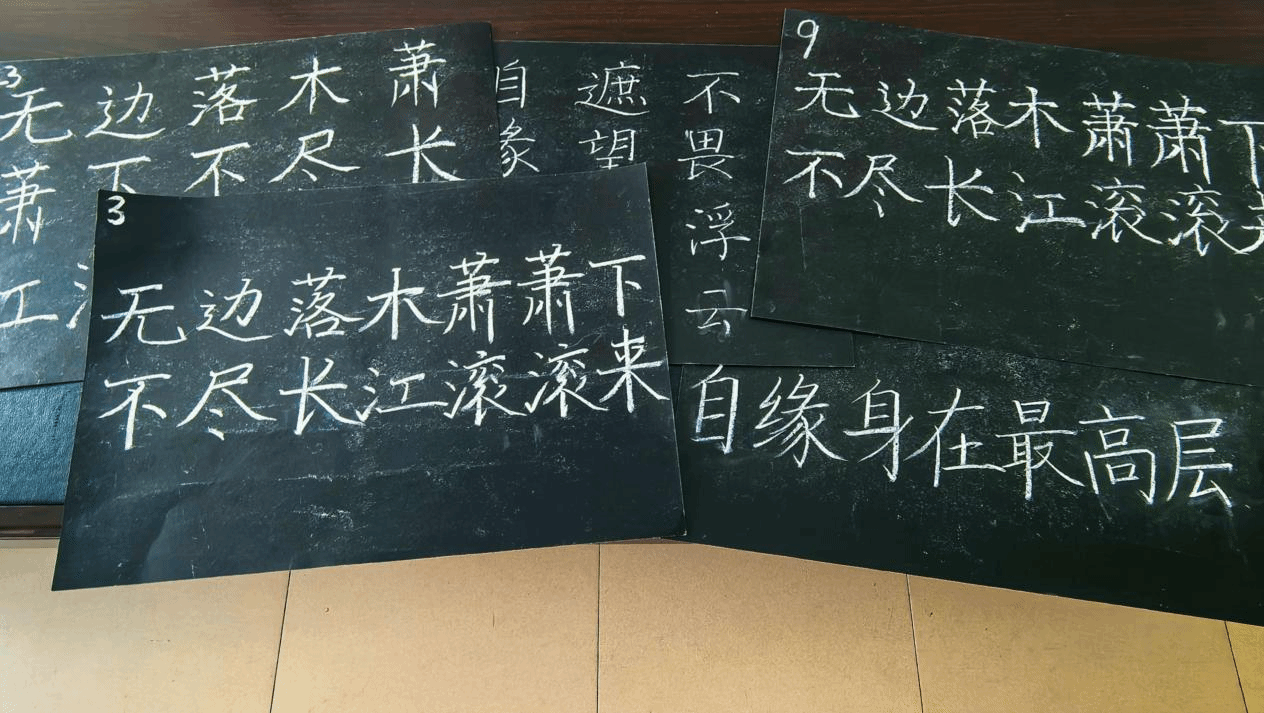 3
无边落木萧
萧下不尽长
江
自遮不
缘望畏
浮
云
9
无边落木萧萧下
不尽长江滚滚
3
无边落木萧萧下
不尽长江滚滚来
自缘身在最高层